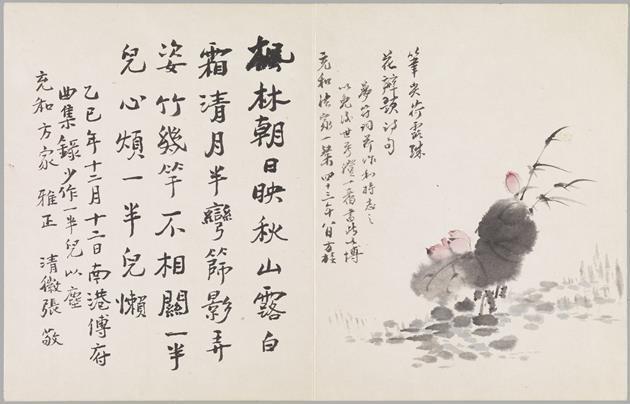 筆尖荷露珠
花瓣題詩句
夢窗詞 作和時志之
以免 世考證一番書此以博
充和法家一粲 四十三年八月方桂
楓林朝日映秋山露白
霜清月半彎篩影弄
姿竹幾竿不相關一半
兒心煩一半兒懶
乙巳年十二月十二日南港傅府
曲集錄少作一半兒以塵
充和方家 雅正 清徽張敬